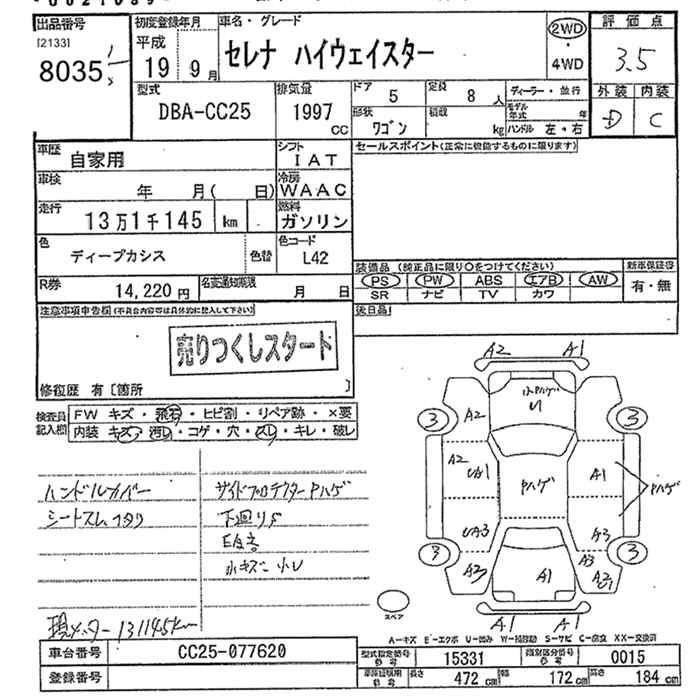 出品番号
[2133]
8035
初度登録年月
平成
19 9月
車名・グレード
セレナ ハイウェイスター
2WD
・
4WD
評価点
3.5
外装 内装
D C
型式
DBA-CC25
排気量
1997
CC
ドア
5
定員
8人
形状
ワゴン
積載
kg
ディーラー・並行
モデル年式 年
ハンドル 左・右
車歴
自家用
シフト
IAT
車検
年 月( 日)
冷房
WAAC
走行
13万1千145 km
燃料
ガソリン
色
ディープカシス
色替
色コード
L42
R券
14,220円
名変通知期限
月 日
セールスポイント(正常に機能するものに限ります)
装備品(純正品に限り○をつけてください)
PS PW ABS エアB AW
SR ナビ TV カワ
新車保証書
有・無
後日品
注意事項申告欄(不具合内容等は具体的に記入して下さい)
売りつくしスタート
修復歴 有〔箇所 〕
検査員記入欄
FW キズ・飛石・ヒビ割・リペア跡・×要
内装 キズ・汚レ・コゲ・穴・スレ・キレ・破レ
ハンドルカバー
シートスレ
サイドプロテクターPハゲ
下回りS
小キズ 小U
現メーター131145km
A2 A1
U
3 3
A2
A2
UA1
Pハゲ
A1
Pハゲ
UA3
A3
3 3
A3
A1
A3
A1 A1
スペア
A-キズ E-エクボ U-凹み W-補修跡 S-サビ C-腐食 XX-交換済
車台番号
CC25-077620
登録番号
型式指定番号
15331
類別区分番号
0015
長さ
472 cm
幅
172 cm
高さ
184 cm